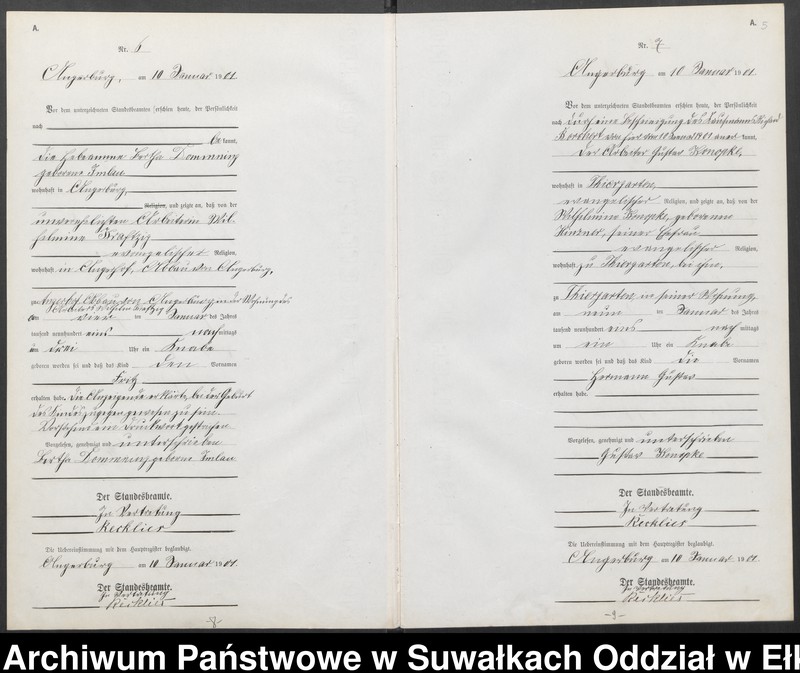 A.
Nr. 6
Angerburg, am 10 Januar 1901
Vor dem unterzeichneten Standesbeamten erschien heute, der Persönlichkeit
nach
be kannt,
die Hebeamme Bertha Domming
geborene Imlau
wohnhaft in Angerburg,
Religion, und zeigte an, daß von der
unverehelichten Arbeiterin Wil-
helmine Kraftzig
evangelischer Religion,
wohnhaft in Angerhof, Abbau von Angerburg,
zu Angerhof Abbau von Angerburg, in der Wohnung des
Arbeiters Wilhelm Kraftzig
am vier ten Januar des Jahres
tausend neunhundert eins nach mittags
um drei Uhr ein Knabe
geboren worden sei und daß das Kind den Vornamen
Fritz
erhalten habe. Die Anzeigende erklärte, bei der Geburt
des Kindes zugegen gewesen zu sein.
Vorstehend ein Druckwort gestrichen
Vorgelesen, genehmigt und unterschrieben
Bertha Domming geborene Imlau
Der Standesbeamte.
In Vertretung
Recklies
Die Uebereinstimmung mit dem Hauptregister beglaubigt.
Angerburg am 10 Januar 1901
Der Standesbeamte.
In Vertretung
Recklies
-8-
A. 5
Nr. 7
Angerburg am 10 Januar 1901
Vor dem unterzeichneten Standesbeamten erschien heute, der Persönlichkeit
nach durch eine Bescheinigung des Kaufmanns
von hier vom 10 Januar 1901 aner kannt,
der Arbeiter Gustav Konopke,
wohnhaft in Thiergarten,
evangelischer Religion, und zeigte an, daß von der
Wilhelmine Konopke, geborenen
seiner Ehefrau
evangelischer Religion,
wohnhaft zu Thiergarten, bei ihm,
zu Thiergarten, in seiner Wohnung,
am neun ten Januar des Jahres
tausend neunhundert eins nach mittags
um ein Uhr ein Knabe
geboren worden sei und daß das Kind die Vornamen
Hermann Gustav
erhalten habe.
Vorgelesen, genehmigt und unterschrieben
Gustav Konopke
Der Standesbeamte.
In Vertretung
Recklies
Die Uebereinstimmung mit dem Hauptregister beglaubigt.
Angerburg am 10 Januar 1901
Der Standesbeamte.
In Vertretung
Recklies
-9-
Archiwum Państwowe w Suwałkach Oddział w Ełk